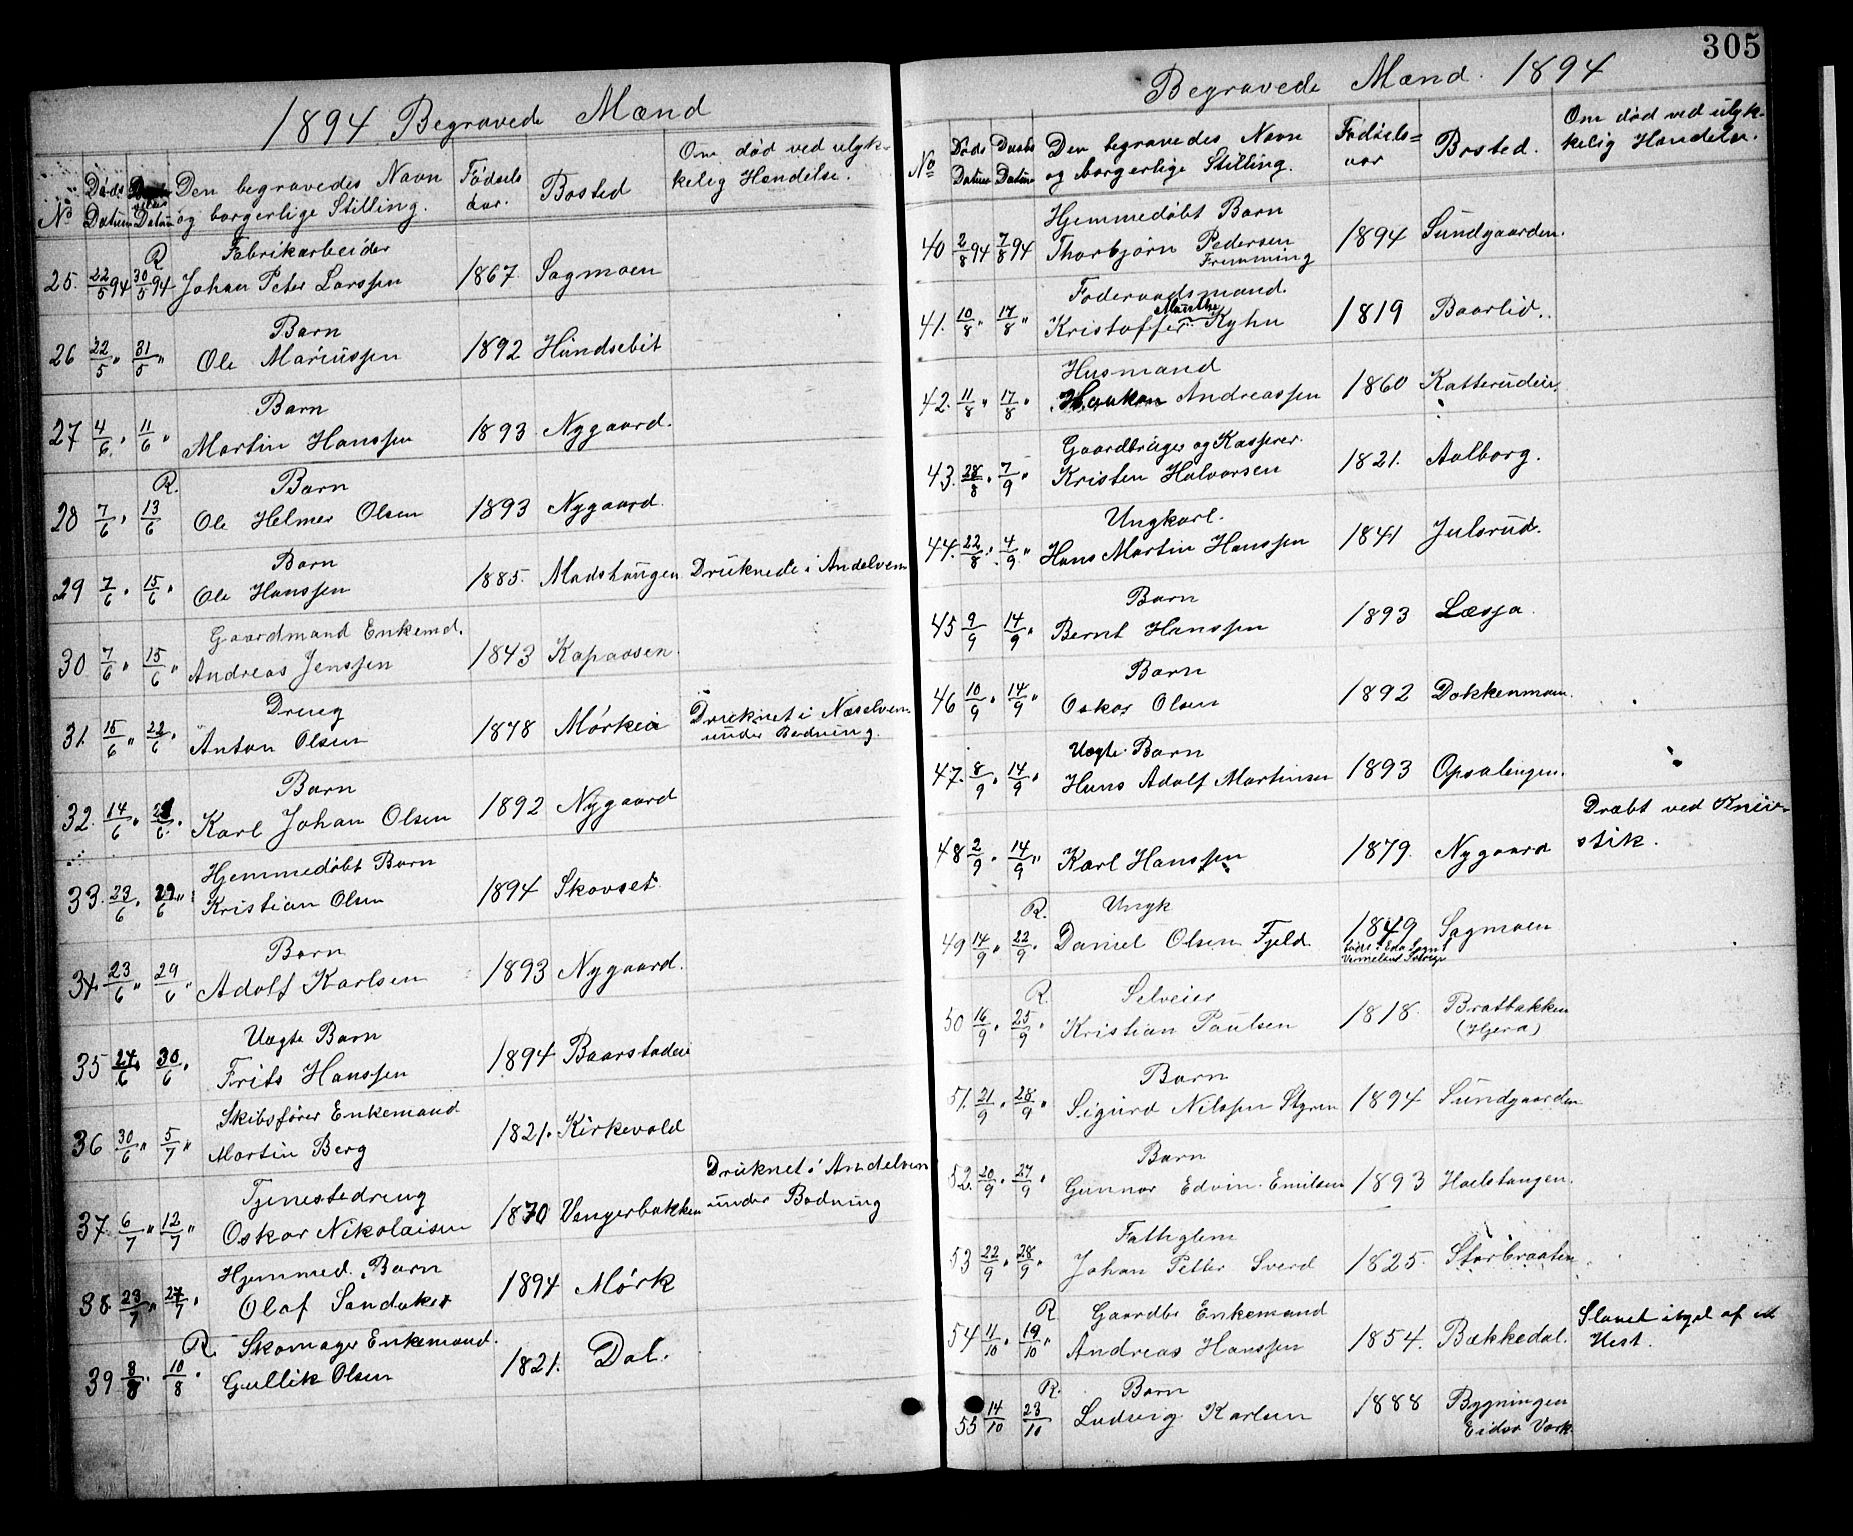 305
1894 Begravede Mænd
Nº Døds Datum Datum Den begravedes Navn og borgerlige Stilling. Fødsels aar. Bosted Om død ved ulyk-
kelig Hændelse.
R Fabrikarbeider
25. 22/5 94 30/5 94 Johan Peter Larssen 1867 Sagmoen
Barn
26 22/5 " 31/5 " Ole Mariussen 1892 Hundsebit
Barn
27 4/6 " 11/6 " Martin Hanssen 1893 Nygaard.
R. Barn
28 7/6 " 13/6 Ole Helmer Olsen 1893 Nygaard.
Barn
29 7/6 " 15/6 " Ole Hanssen 1885. Madshaugen Druknede i Andelven
Gaardmand Enkemd.
30 7/6 " 15/6 " Andreas Jenssen 1843 Kapaasen.
Dreng
31. 15/6 " 22/6 " Anton Olsen 1878 Mørkeia Druknet i Næselven
under Badning.
Barn
32. 14/6 " Karl Johan Olsen 1892 Nygaard
Hjemmedøbt Barn
33. 23/6 " 29/6 " Kristian Olsen 1894 Skovset.
Barn
34. 23/6 " 29/6 " Adolf Karlsen 1893 Nygaard.
Uægte Barn
35 24/6 30/6 " Frits Hanssen 1894 Baarstadeie
Skibsfører Enkemand
36 30/6 " 5/7 " Martin Berg 1821. Kirkevold
Tjenestedreng Druknet i Andelven
37. 6/7 " 12/7 " Oskar Nikolaisen 1870 Vengerbakken under Badning
Hjemmed. Barn
38 23/7 " 27/7 " Olaf Sandaker 1894 Mørk
R. Skomager Enkemand.
39 8/8 " 10/8 " Gullik Olsen 1821. Dal.
Begravede Mænd. 1894
Nº Døds Datum Datum Den begravedes Navn og borgerlige Stilling. Fødsels= aar Bosted. Om død ved ulyk-
kelig Hændelse.
Hjemmedøbt Barn
40 2/8 94 7/8 94 Thorbjørn Pedersen 1894 Sundgaarden.
Fremming
Føderaadsmand.
Manthe
41. 10/8 " 17/8 " Kristoffer Kyhn 1819 Baarlid.
Husmand
42. 11/8 " 17/8 " Haakon Andreassen 1860 Katterudeie.
Gaardbruger og Kasserer.
43. 28/8 " 7/9 " Kristen Halvorsen 1821. Aalborg.
Ungkarl.
44. 22/8 " 4/9 " Hans Martin Hanssen 1841 Julsrud.
Barn
45 9/9 14/9 " Bernt Hanssen 1893 Læsja.
Barn
46 10/9 " 14/9 " Oskar Olsen 1892 Dokkenmoen.
Uægte Barn
47. 8/9 " 14/9 " Hans Adolf Martinsen 1893 Opsalengen.
Dræbt ved Kniv-
48 2/9 " 14/9 " Karl Hanssen 1879. Nygaard stik.
R. Ungk
49 14/9 " 22/9 " Daniel Olsen Fjeld. 1849 Sagmoen
født i Eda Sogn
Vermeland Sverige
R. Selveier
50 16/9 " 25/9 " Kristian Paulsen 1818. Bratbakken
(Hjera)
Barn
51. 21/9 " 28/9 " Sigurd Nilssen Styren 1894 Sundgaarden
Barn
52. 20/9 " 27/9 " Gunnar Edvin Emilsen 1893 Haelstangen.
Fattiglem
53 22/9 " 28/9 " Johan Petter Sverd 1825. Storbraaten
R Gaardbr Enkemand Slaaet ihjel af et
54 11/10 " 19/10 " Andreas Hanssen 1854. Bækkedal. Hest.
R. Barn
55 14/10 23/10 Ludvig Karlsen 1888 Bygningen
Eidsv Værk.